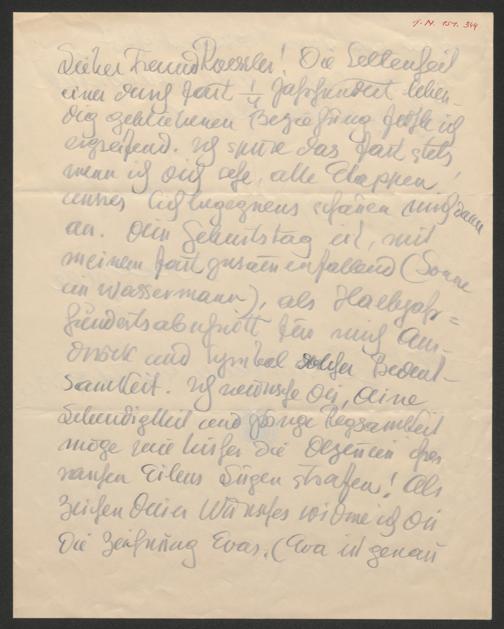 J. N. 151.344
Lieber Freund Roessler! Die Seltenheit
einer durch fast 1/4 Jahrhundert leben-
dig gebliebenen Beziehung fühle ich
ergreifend. Ich spüre das fast stets
wenn ich dich sehe, alle Etappen
unseres Sichbegegnens schauen mich dann
an. Dein Geburtstag ist, mit
meinem fast zusammenfallend (Sonne
im Wassermann), als Halbjahr=
hundertsabschnitt für mich Aus-
druck und Symbol solcher Bedeut-
samkeit. Ich wünsche Dir, deine
Lebendigkeit und geistige Regsamkeit
möge wie bisher die Dezennien ihres
raschen Eilens Lügen strafen! Als
Zeichen dieses Wunsches widme ich Dir
die Zeichnung Evas. (Eva ist genau